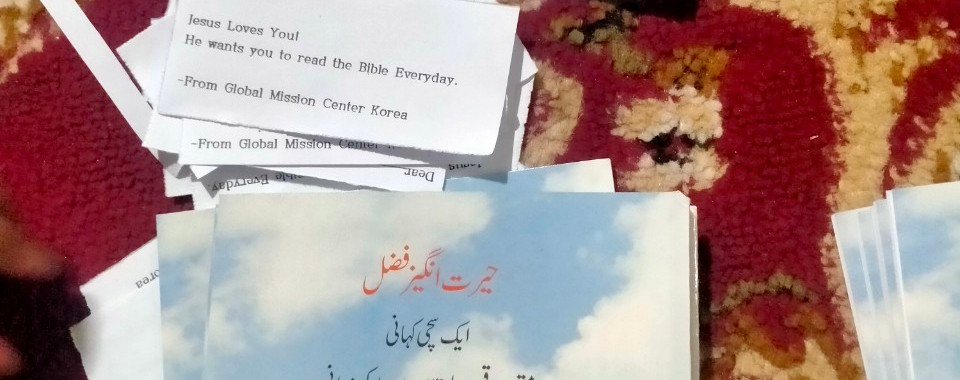 Jesus Loves You!
He wants you to read the Bible Everyday.
-From Global Mission Center Korea
-From Global Mission Center
Dear
Bible Everyday.
orea
حیرت انگیز فضل
ایک سچی کہانی